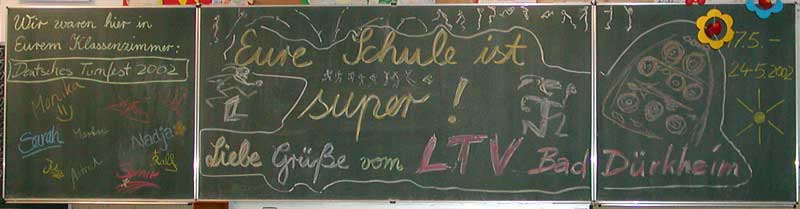 Wir waren hier in
Eurem Klassenzimmer:
Deutsches Turnfest 2002
Monika
Sarah
Nadja
Astrid
Eure Schule ist
super!
Liebe Grüße vom LTV Bad Dürkheim
17.5.-
24.5.2002